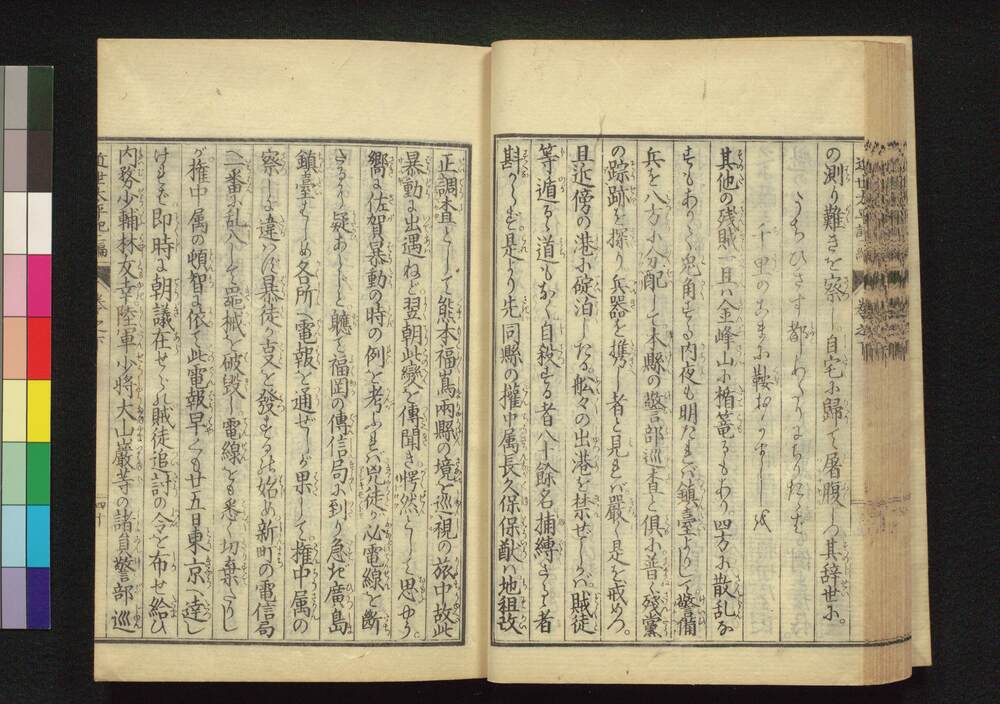 の測り難きを察し自宅に歸て屠腹しつ其辞世に。
うちひさす都しめたりにちりたす
千里のこまに鞍おかましし
其他の残賊一旦ハ金峰山に楯篭るもあり。四方に散乱な
すもありて兎角する内夜も明たれバ鎮臺よりして警備
兵を八方に分配して本縣の警部巡査と俱に普く残黨
の踪跡を探り兵器を携し者と見れバ嚴しく是を戒め。
且近傍の港に碇泊したる。舩々の出港を禁ぜしかバ。賊徒
等遁るゝ道もなく自殺する者八十餘名捕縛さるゝ者
尠からず。是より先同縣の權中属長久保猷ハ地租改
正調査として熊本福嶌両縣の境を巡視の旅中故此
暴動に出遇ねど翌朝此變を傳聞き愕然として思やう。
嚮に佐賀暴動の時の例を考ふれバ兇徒が必電線を断
さるなり疑あらじと軈て福岡の傳信局に到り急ぎ廣島
鎮臺をはじめ各所へ電報を通ぜしが果して権中属の
察しに違ハず暴徒が変を發するの始め新町の電信局
へ一番に乱入して噐械を破毀し電線をも悉く切棄たりし
が権中属の頓智に依て此電報早くも廿五日東京へ達し
けれバ即時に朝議在せられ賊徒追討の令を布せ給ひ
内務少輔林友幸陸軍少將大山巖等の諸員警部巡
近世太平記二編
四十